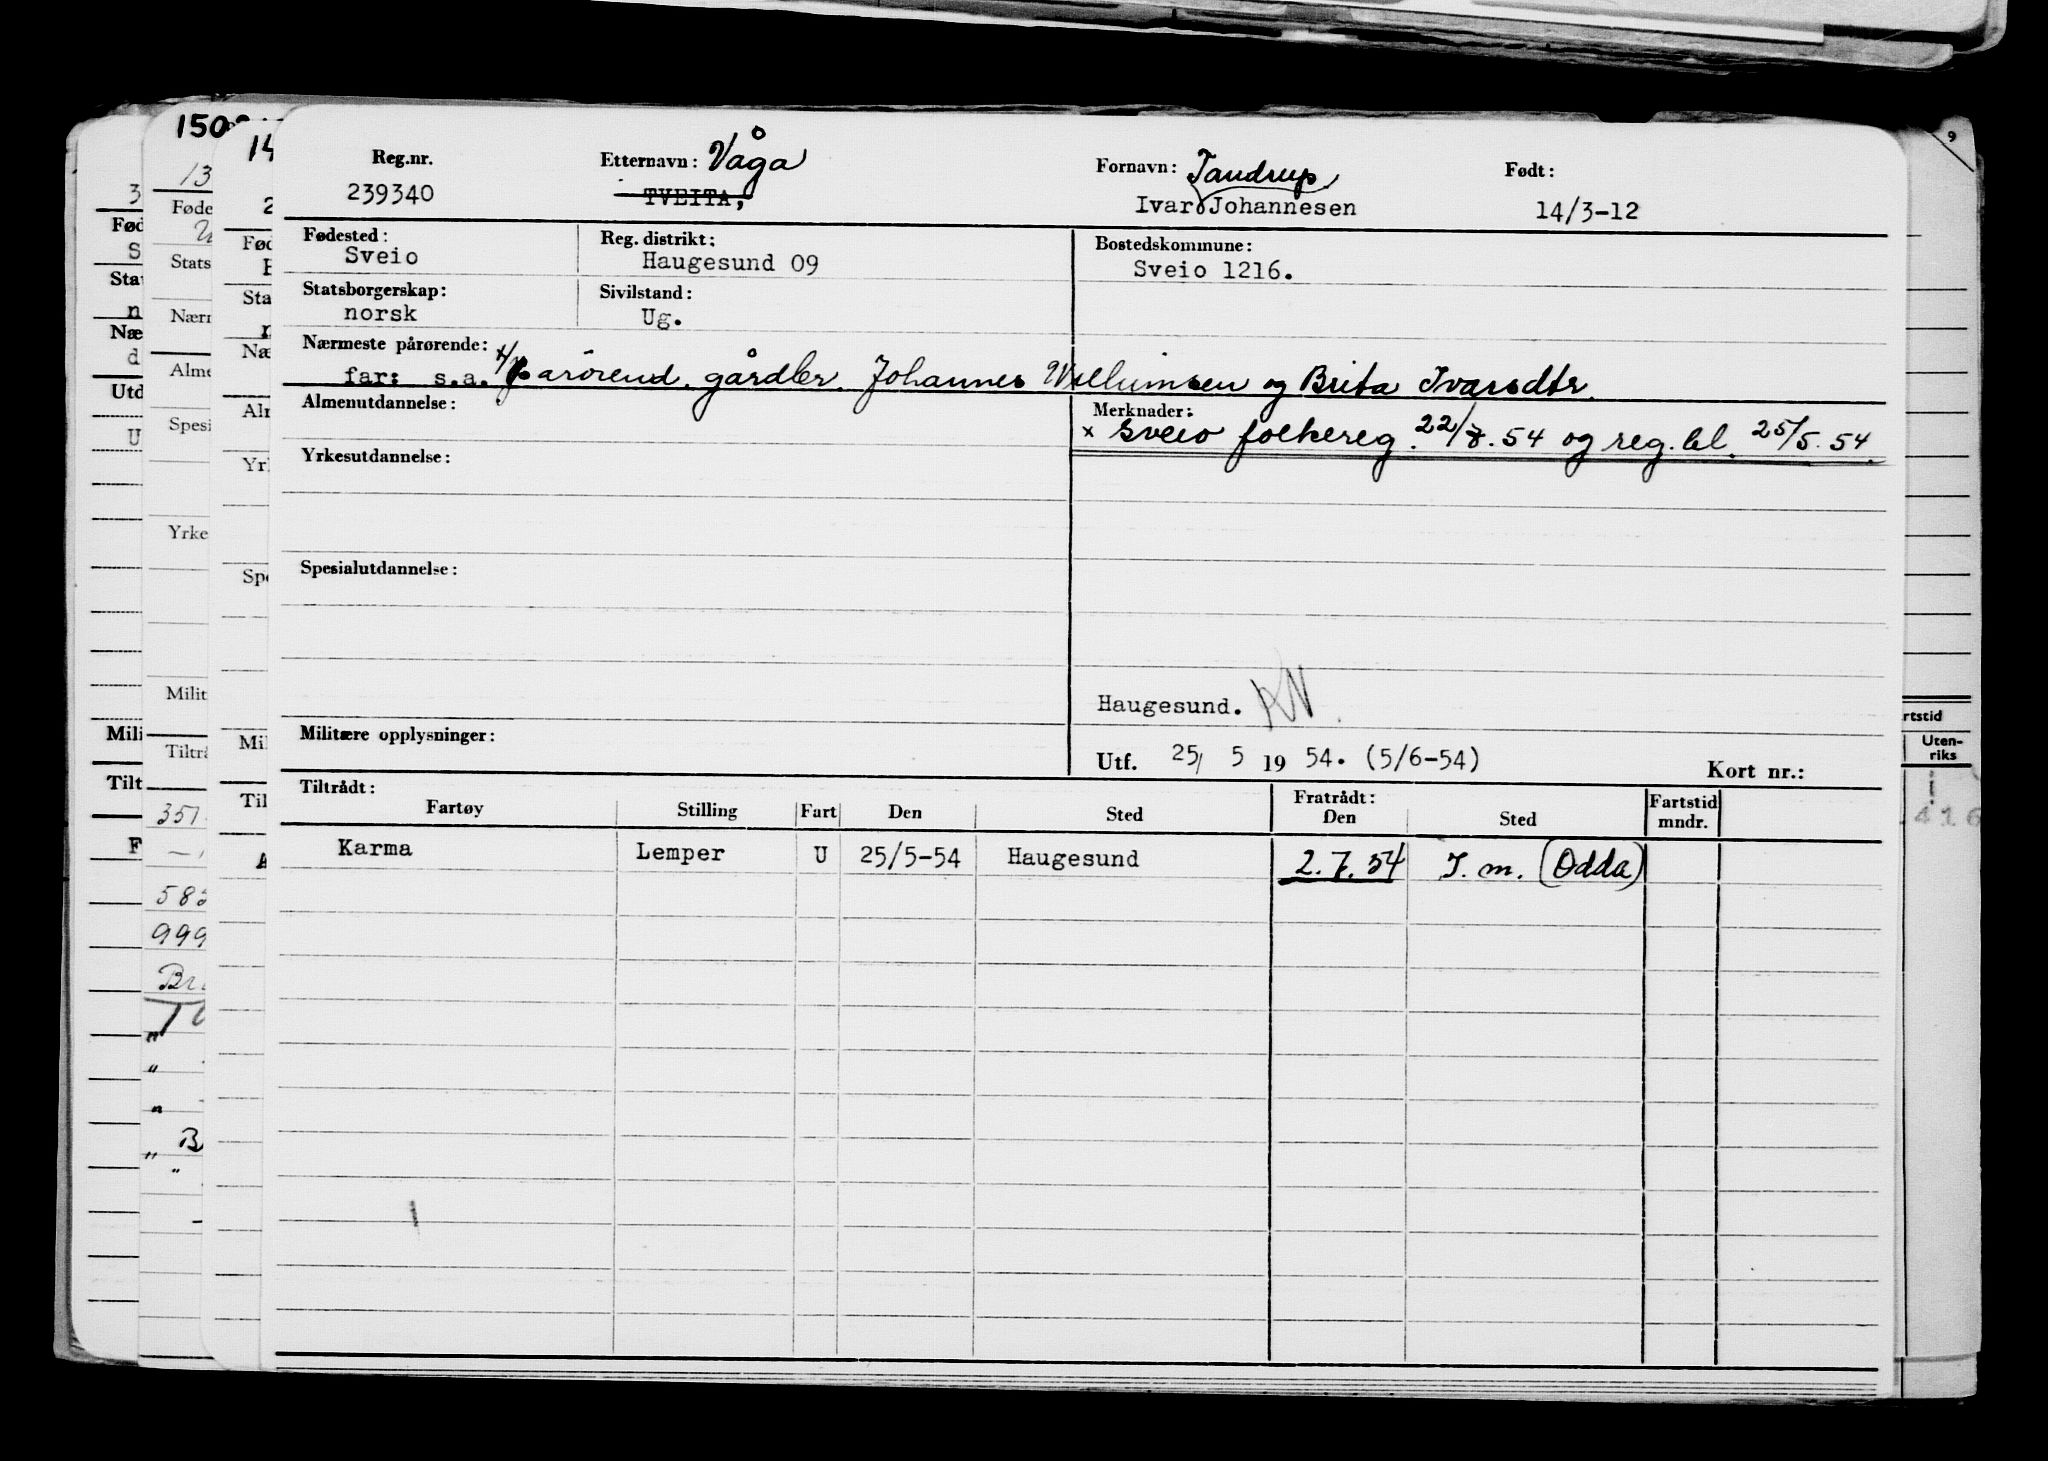 9
150
13
14
3
2
Reg.nr.
239340
Etternavn: Våga
TVEITA,
Fornavn: Tandrup
Ivar Johannesen
Født:
14/3-12
Fødested:
Sveio
Reg. distrikt:
Haugesund 09
Bostedskommune:
Sveio 1216.
Statsborgerskap:
norsk
Sivilstand:
Ug.
Nærmeste pårørende:
far: s.a. x/ parörend. gårdbr. Johannes Willumsen og Brita Ivarsdtr.
Almenutdannelse:
Merknader:
x Sveio folkereg. 22/8.54 og reg.bl. 25/5.54.
Yrkesutdannelse:
Spesialutdannelse:
Haugesund.
Militære opplysninger:
Utf. 25/ 5 19 54. (5/6-54)
Kort nr.:
Tiltrådt:
Fartøy Stilling Fart Den Sted
Fratrådt:
Den Sted
Fartstid
mndr.
Karma Lemper U 25/5-54 Haugesund 2.7.54 I.m. (Odda)
Fød
S
Stat
n
Næ
d
Utd
U
Mili
Tilt
F
Føde
Stats
Nærr
Alme
Spesi
Yrke
Milit
Tiltrå
351
583
999
Fød
Sta
Næ
Alr
Yrk
Spe
Mil
Til
A
rtstid
Uten-
riks
416